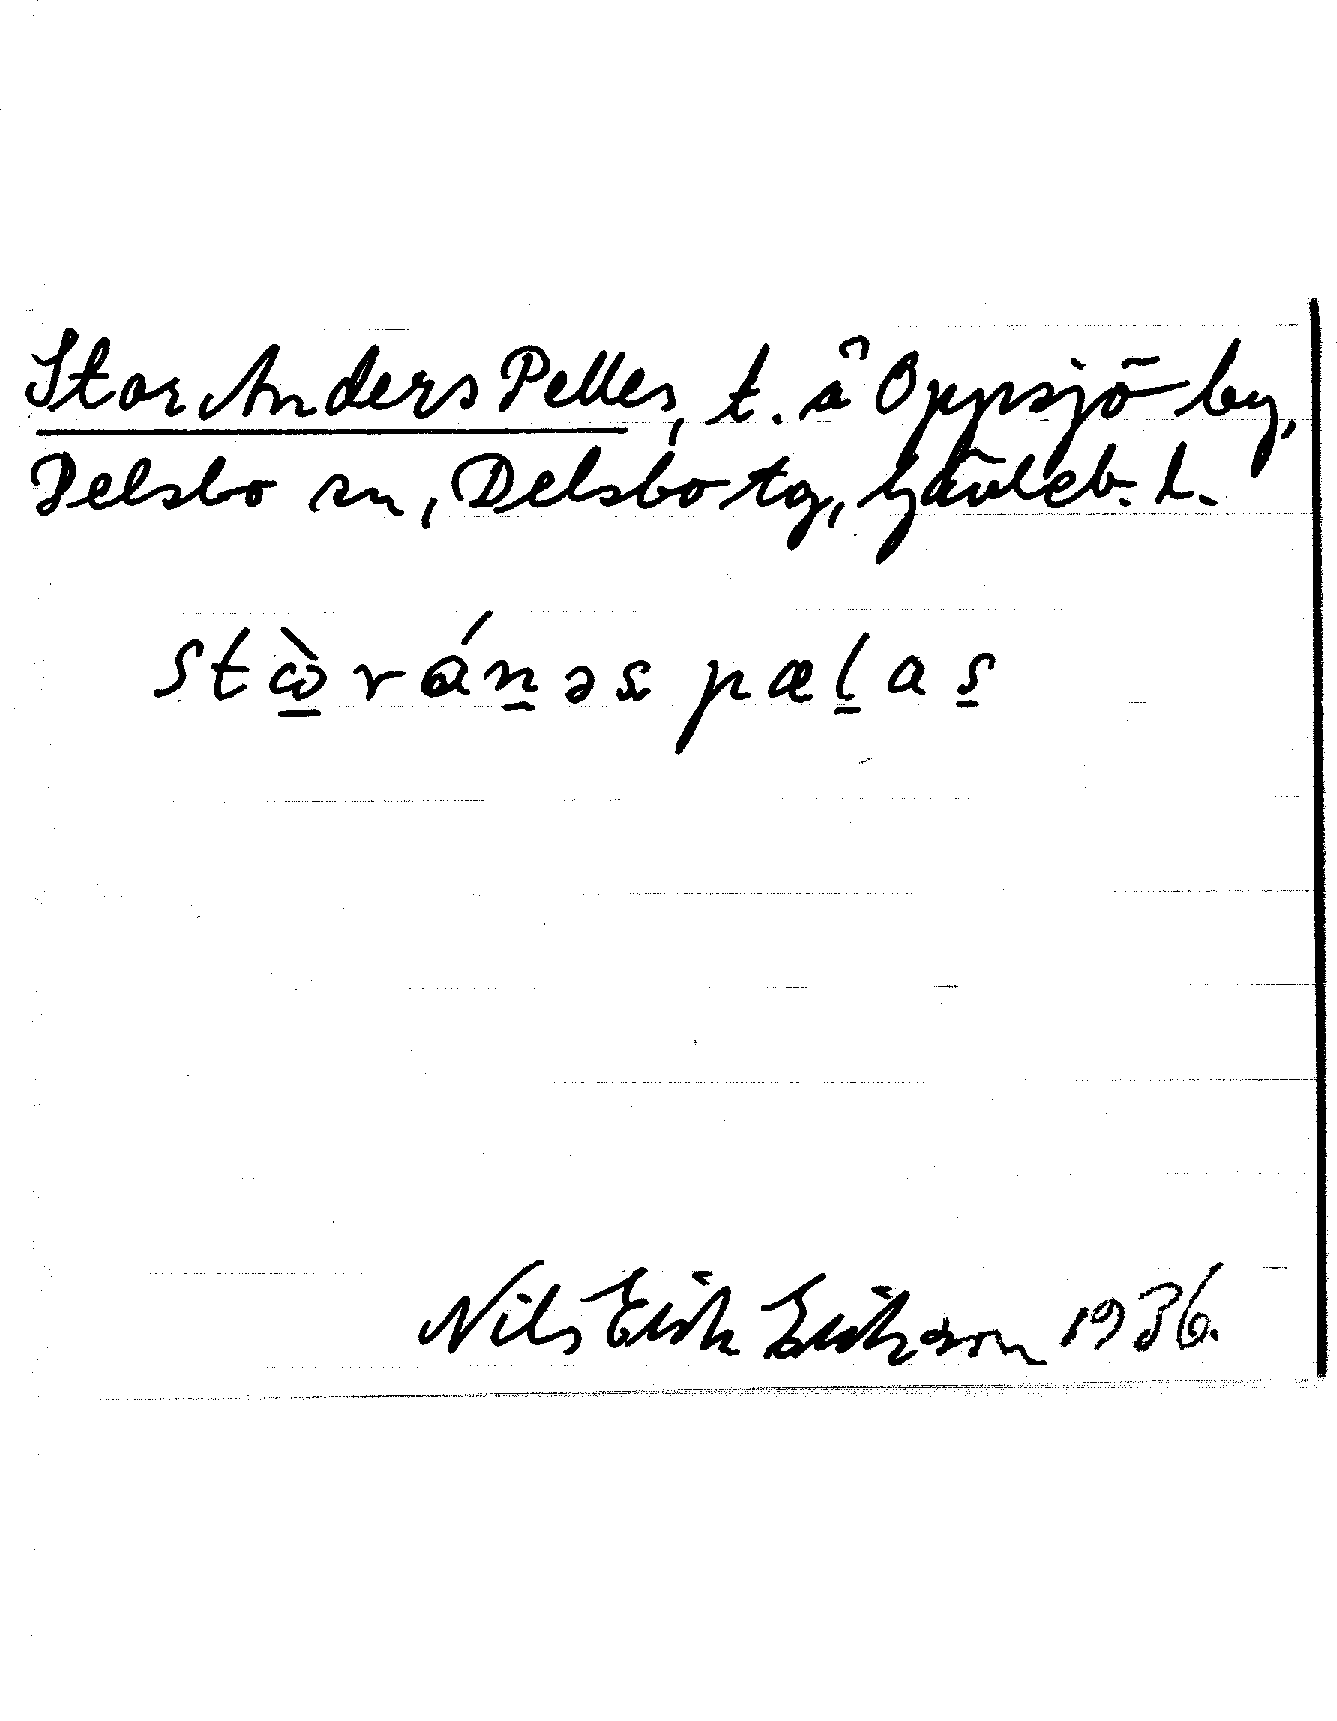 Stor Anders Pelles, t. å Oppsjö by,
Delsbo sn, Delsbo tg, Gävleb. L.
stὼ̲rán̲əs pæl̲as̲
Nils Erik Erikson 1936.